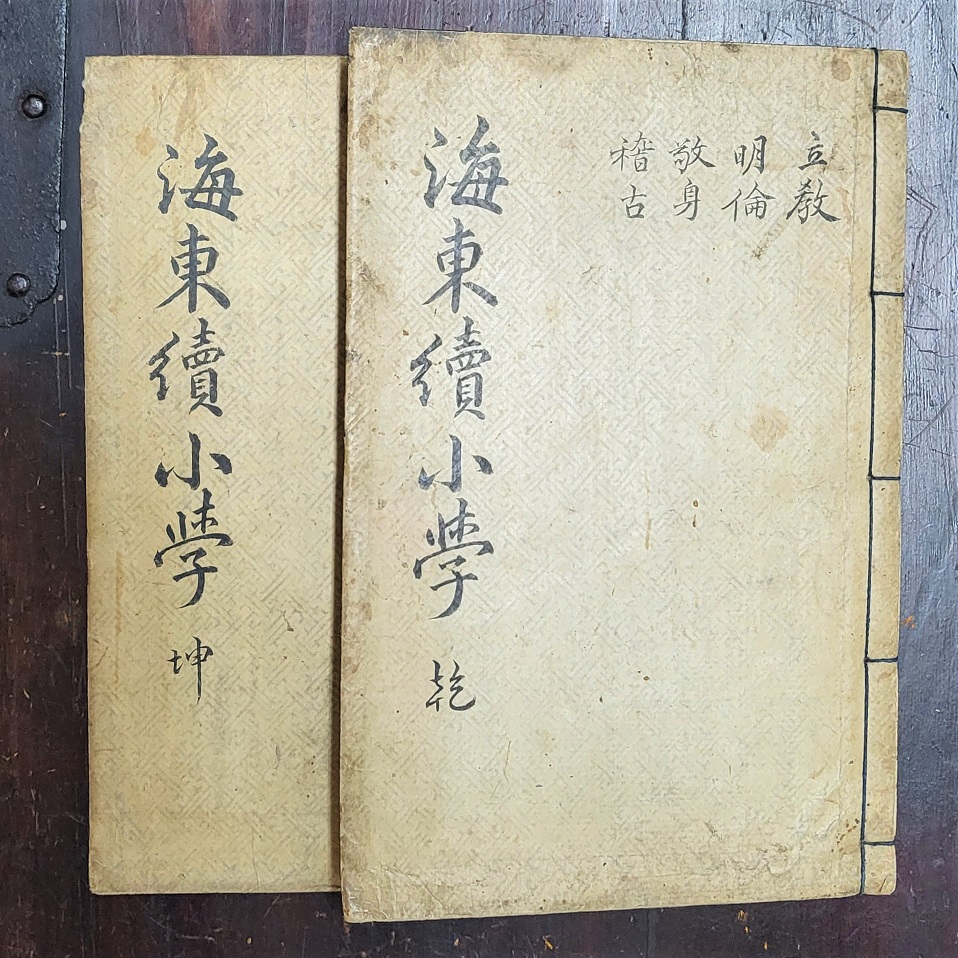 立教
明倫
敬身
稽古
海東續小學 乾
海東續小學 坤